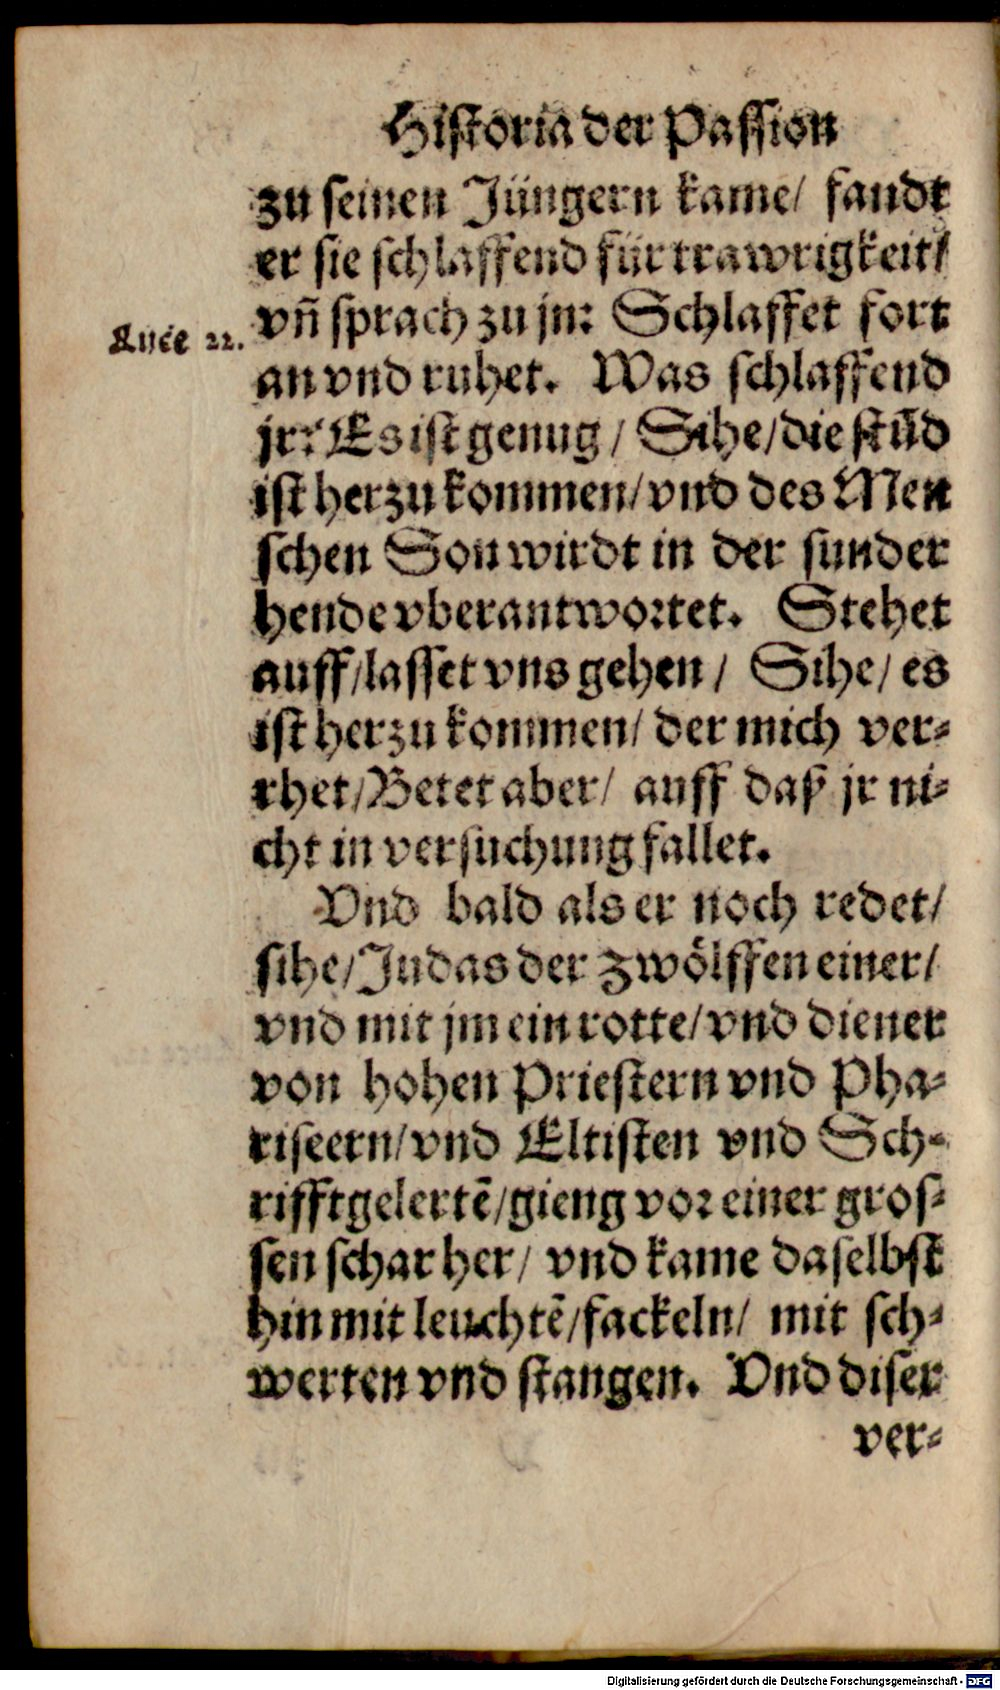 Historia der Passion
zu seinen Jüngern kame/ fandt
er sie schlaffend für trawrigkeit/
vñ sprach zu jn: Schlaffet fort
Luce 22.
an vnd ruhet. Was schlaffend
jr? Es ist genug/ Sihe/die stūd
ist herzu kommen/vnd des Men
schen Son wirdt in der sunder
hende vberantwortet. Stehet
auff/lasset vns gehen/ Sihe/ es
ist herzu kommen/ der mich ver-
rhet/Betet aber/ auff daß jr ni-
cht in versuchung fallet.
Vnd bald als er noch redet/
sihe/Judas der zwölffen einer/
vnd mit jm ein rotte/vnd diener
von hohen Priestern vnd Pha-
riseern/vnd Eltisten vnd Sch-
rifftgelertē/gieng vor einer gros-
sen schar her/ vnd kame daselbst
hin mit leuchtē/fackeln/ mit sch-
werten vnd stangen. Vnd diser
ver-
Digitalisierung gefördert durch die Deutsche Forschungsgemeinschaft - DFG